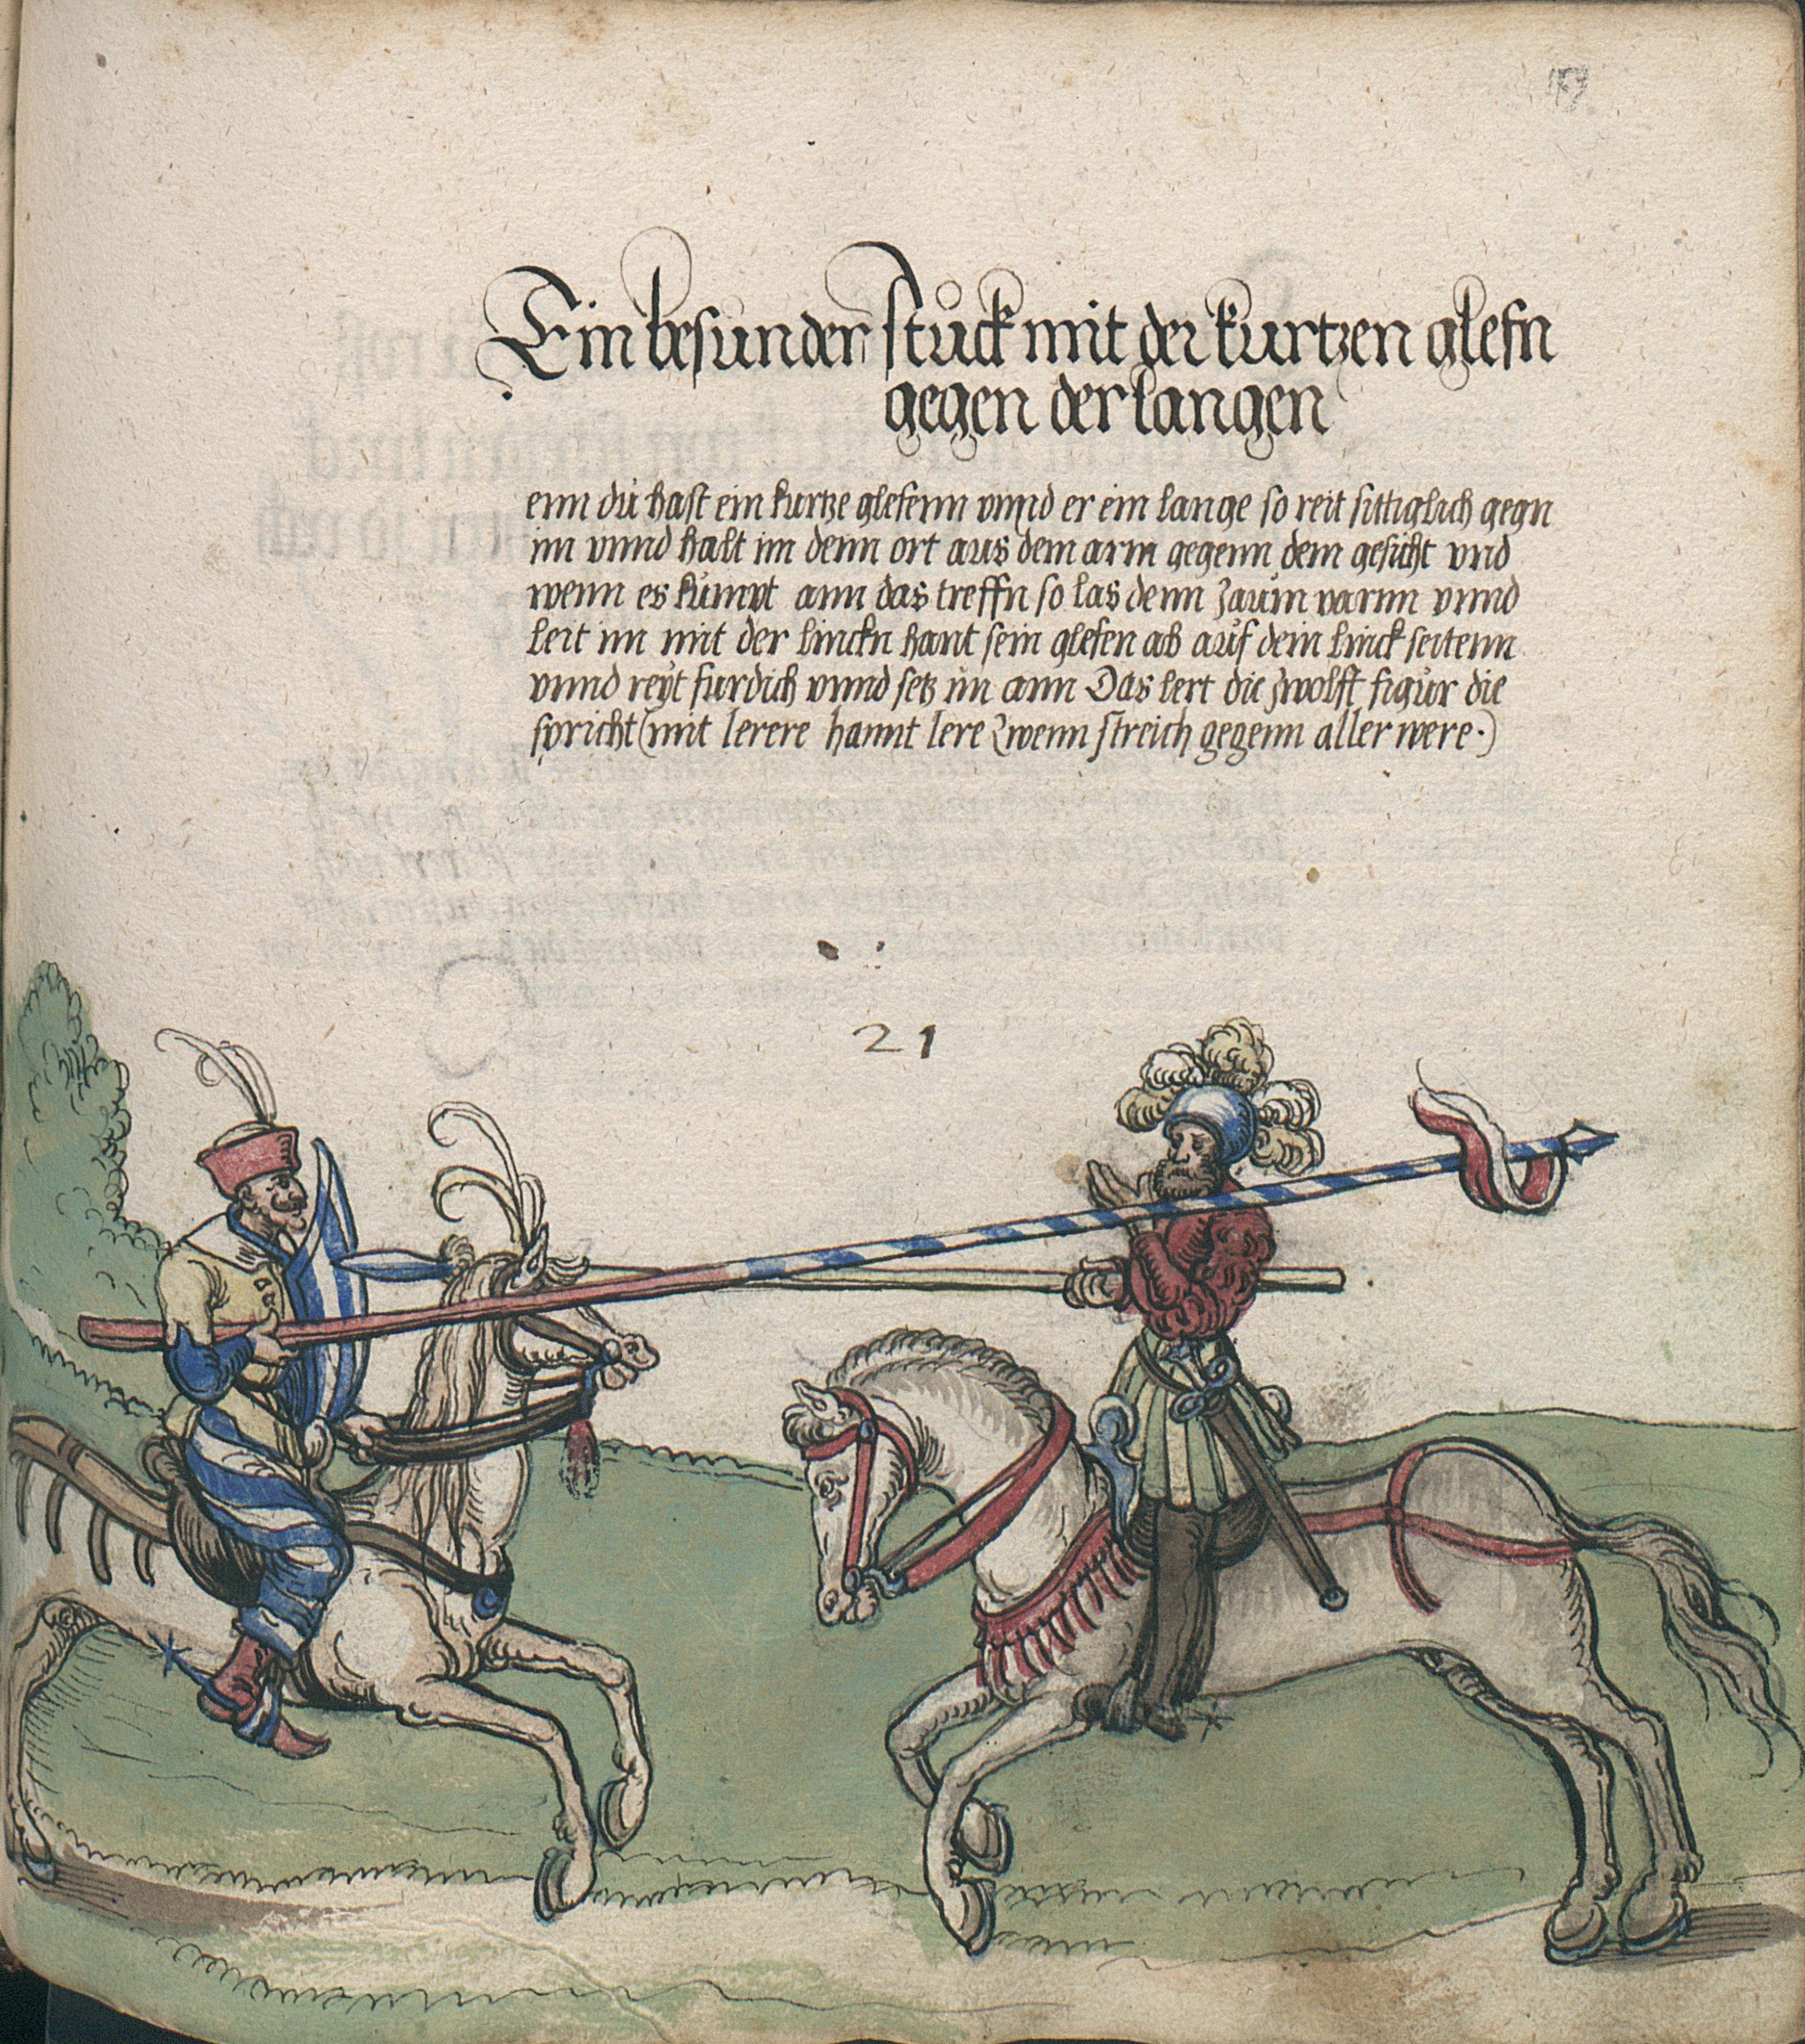 Ein besunder stuck mit der kurtzen glefn
gegen der langen
enn dü hast ein kurtze glefenn vnnd er ein lange so reit sittiglich gegn
im vnnd halt im denn ort aus dem arm gegenn dem gesicht vnd
wenn es kümpt ann das treffn so las denn zaüm varnn vnnd
leit im mit der linckn hant sein glefen ab auf dein linck seitenn
vnnd reyt furdich vnnd setz im ann Das lert die zwolft figür die
spricht (mit lerere hannt lere zwenn streich gegenn aller were.)
21